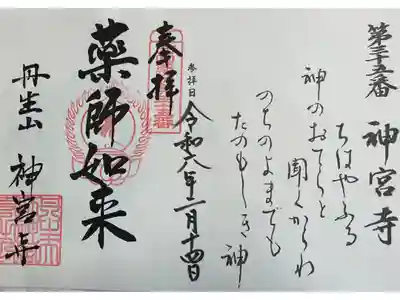 第三十五番 神宮寺
ちはやふる
神のおてらと
聞くからわ
のちのよまでも
たのもしき神
参拝日 令和八年二月十四日
奉拝
薬師如来
丹生山 神宮寺